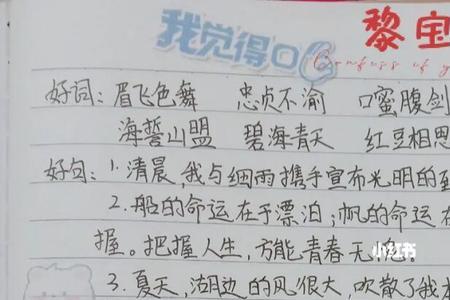 我觉得口 黎宝
Confuss of y
好词：眉飞色舞 忠贞不渝 口蜜腹剑
海誓山盟 碧海青天 红豆相思
好句：1.清晨，我与细雨携手宣布光明的到
2.船的命运在于漂泊；帆的命运在
握。把握人生，方能青春无悔。
小红书
3.夏天，湖边的风很大，吹散了我